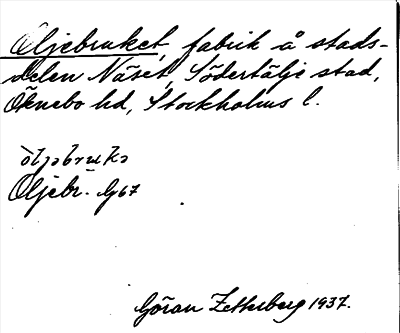 Oljebruket, fabrik å stads-
delen Näset, Södertälje stad,
Öknebo hd, Stockholms l.
òljəbrukə
Oljebr. G67
Göran Zetterberg 1937.